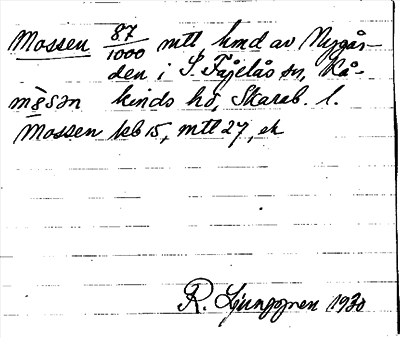 Mossen 87/1000 mtl, hmd av Nygår-
den i S. Fågelås sn, Kå-
mòsən kinds hd, Skarab. l.
Mossen kb 15, mtl 27, ek
R. Ljunggren 1930